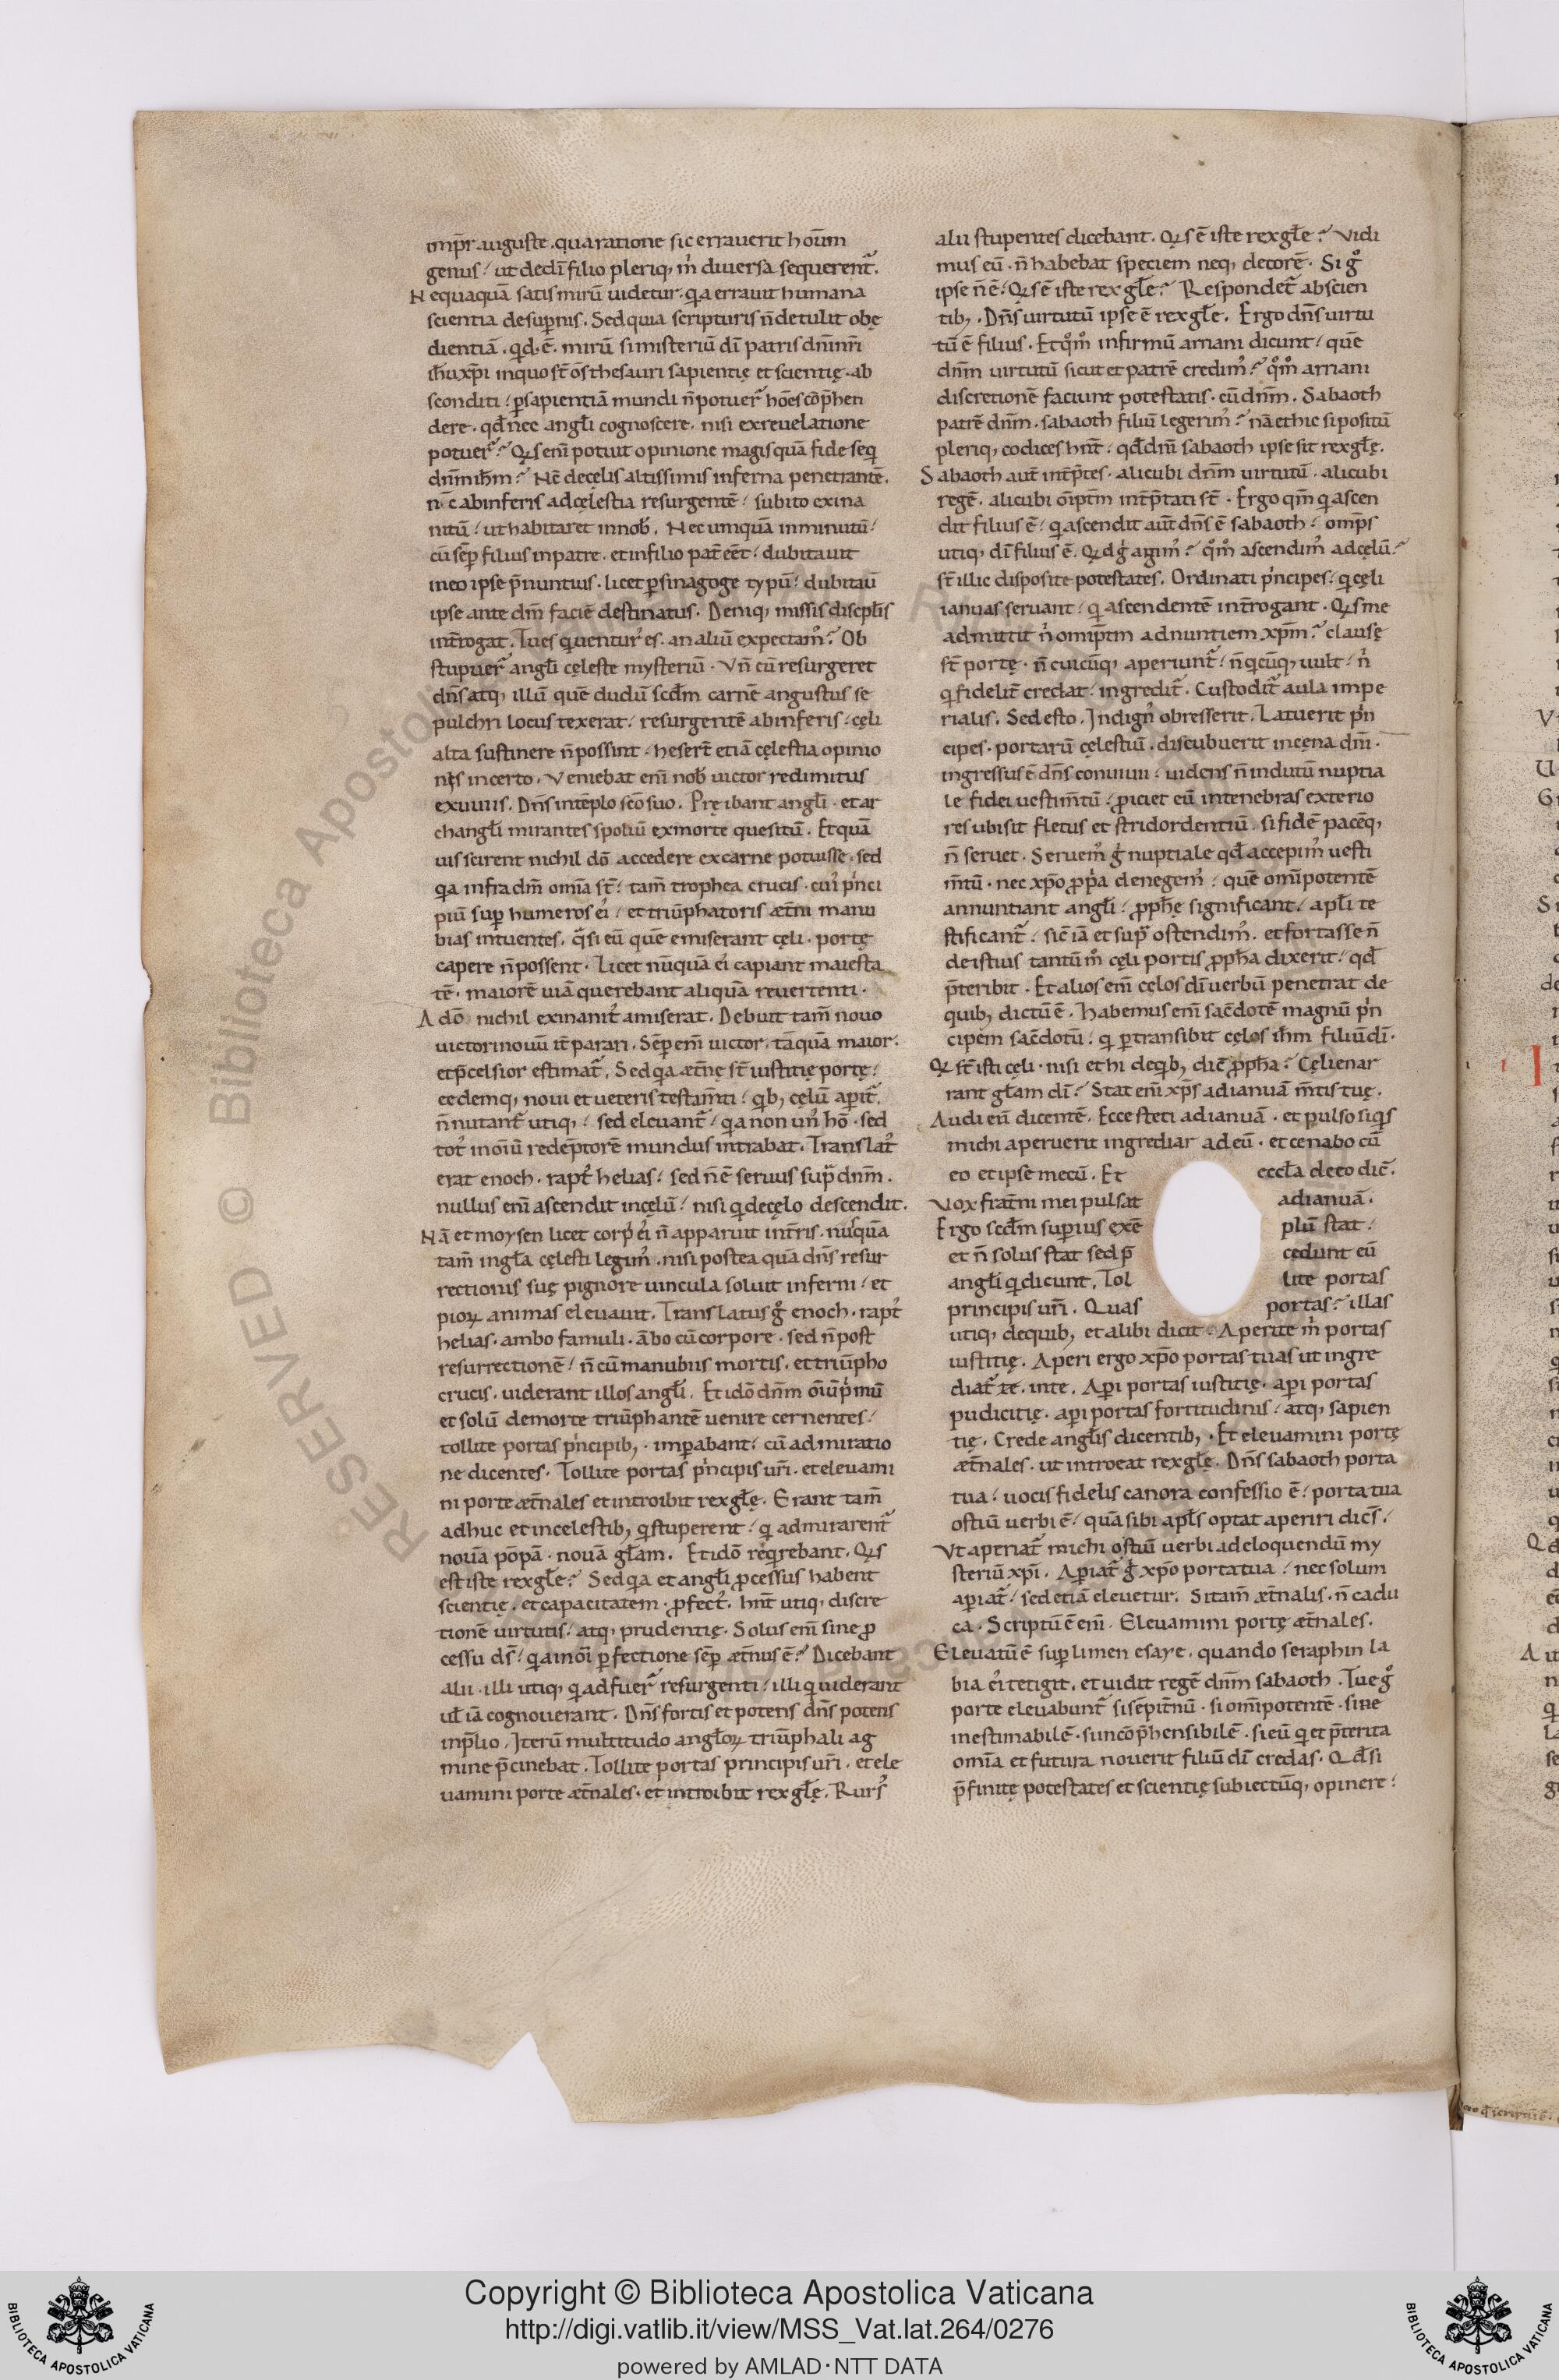 imp̄r auguste . qua ratione sic errauerit hoūm
genus / ut de dei filio pleriq; m̓ diuersa sequerent᷑.
Nequaquā satis mirū uidetur . q̇a errauit humana
scientia de sup̄nis . Sed quia scripturis n̄ detulit obę
dientiā . qd̄ . ē . mirū si misteriū dī patris dn̄i nr̄i
ih̄u xp̄i in quo st̄ om̄s thesauri sapientię et scientię . ab
sconditi / p̱ sapientiā mundi n̄ potuer̄ hoēs cōp̄hen
dere . qd̄ nec angl̄i cognoscere . nisi ex reuelatione
potuer̄ ? Q̇s eni potuit opinione magis quā fide seq̇
dn̄m ih̄m ? Nc̄ de cęlis altissimis inferna penetrantē .
n̄c ab inferis ad cęlestia resurgentē / subito exina
nitū / ut habitaret in nob̄ . Nec umquā inminutū /
cū sēp filius in patre . et in filio pat̄ eēt / dubitauit
in eo ipse p̄nuntius . licet p̱ sinagoge typū / dubitau̅
ipse ante dn̄i faciē destinatus . Deniq; missis discipl̄is
int̄rogat . Tu es q̇ uentur᷒ es . an aliū expectam᷒ ? Ob
stupuer̄ angl̄i cęleste mysteriū . Vn̄ cū resurgeret
dn̄s atq; illū quē dudū scd̄m carnē angustus se
pulchri locus texerat / resurgentē ab inferis / cęli
alta sustinere n̄ possint / heser̄t etiā cęlestia opinio
nis incerto . Veniebat eni nob̄ uictor redimitus
exuuiis . Dn̄s in tēplo scō suo . Pręibant angl̄i . et ar
changl̄i mirantes spoliū ex morte quesitū . Et quā
uis scirent nichil dō accedere ex carne potuisse . sed
q̇a infra dn̄m omīa st̄ / tam̄ trophea crucis . cui᷒ p̓nci
piū sup̱ humeros ei᷒ / et triūphatoris æt̄ni manu
bias intuentes . q̄si eū quē emiserant cęli . portę
capere n̄ possent . Licet nūquā ei᷒ capiant maiesta
tē . maiorē uiā querebant aliquā reuertenti .
Adō nichil exinanit᷒ amiserat . Debuit tam̄ nouo
uictori nouū it̄ parari . Sēp eni uictor . tāquā maior .
et p̄celsior estimat᷑ . Sed q̇a æt̄nę st̄ iustitię portę /
eedemq; noui et ueteris testam̄ti / q̇b; cęlū apit᷑ .
n̄ nutant᷑ utiq; / sed eleuant᷑ / q̇a non un᷒ hō . sed
tot᷒ in oīu̅ redēptorē mundus intrabat . Translat᷒
erat enoch . rapt᷒ helias / sed n̄ ē seruus sup̄ dn̄m .
nullus eni ascendit in cęlū / nisi q̇ de cęlo descendit .
Nā et moysen licet corp᷒ ei᷒ n̄ apparuit in t̄ris . nu̅quā
tam̄ in gl̄a cęlesti legim᷒ . nisi postea quā dn̄s resur
rectionis suę pignore uincula soluit inferni / et
pioꝝ animas eleuauit . Translatus g᷒ enoch . rapt᷒
helias . ambo famuli . ābo cū corpore . sed n̄ post
resurrectionē / n̄ cū manubiis mortis . et triūpho
crucis . uiderant illos angl̄i . Et idō dn̄m oīu̅ p̓mū
et solū de morte triūphantē uenire cernentes /
tollite portas p̓ncipib; . imp̱abant / cū admiratio
ne dicentes . Tollite portas p̓ncipis ur̄i . et eleuami
ni porte æt̄nales et introibit rex gl̄ę . Erant tam̄
adhuc et in celestib; q̇ stuperent / q̇ admirarent᷑
nouā pōpā . nouā gl̄am . Et idō req̇rebant . Q̇s
est iste rex gl̄e ? Sed q̇a et angl̄i ꝓcessus habent
scientię . et capacitatem . ꝓfect᷒ . hn̄t utiq; discre
tionē uirtutis / atq; prudentię . Solus eni sine ꝓ
cessu ds̄ / q̇a in oī p̱fectione sēp æt̄nus ē ? Dicebant
alii . illi utiq; q̇ adfuer̄ resurgenti / illi q̇ uiderant
ul̄ iā cognouerant . Dn̄s fortis et potens dn̄s potens
in p̄lio . Iterū multitudo angl̄oꝝ triūphali ag
mine p̄cinebat . Tollite portas principis ur̄i . et ele
uamini porte æt̄nales . et introibit rex gl̄ę . Rurs᷒
alii stupentes dicebant . Q̇s ē iste rex gl̄e ? Vidi
mus eū . n̄ habebat speciem neq; decorē . Si g᷒
ipse n̄ ē / Q̇s ē iste rex gl̄e ? Respondet᷑ ab scien
tib; . Dn̄s uirtutū ipse ē rex gl̄e . Ergo dn̄s uirtu
tū ē filius . Et q̊m̊ infirmū arriani dicunt / quē
dn̄m uirtutū sicut et patrē credim᷒ ? q̊m̊ arriani
discretionē faciunt potestatis . cū dn̄m . Sabaoth
patrē dn̄m . sabaoth filiū legerim᷒ ? nā et hic si positū
pleriq; codices hn̄t / qd̄ dn̄s sabaoth ipse sit rex gl̄ę .
Sabaoth aut̄ int̄p̄tes . alicubi dn̄m uirtutū . alicubi
regē . alicubi oīpt̄m int̄p̄tati st̄ . Ergo qm̄ q̇ ascen
dit filius ē / q̇ ascendit aūt dn̄s ē sabaoth / omp̄s
utiq; dī filius ē . Q̇d g̓ agim᷒ ? q̊m̊ ascendim᷒ ad cęlū ?
st̄ illic disposite potestates . Ordinati p̓ncipes / q̇ cęli
ianuas seruant / q̇ ascendentē int̄rogant . Q̇s me
admittit n̓ omip̄tm adnuntiem xp̄m ? clausę
st̄ portę . n̄ cuicūq; aperiunt᷑ / n̄ q̇cūq; uult / n̓
q̇ fidelit̄ credat / ingredit᷑ . Custodit᷑ aula impe
rialis . Sed esto . Indign᷒ obresserit . Latuerit p̓n
cipes . portarū cęlestiū . discubuerit in cęna dn̄i .
ingressus ē dn̄s conuiuii / uidens n̄ indutū nuptia
le fidei uestim̄tū / ꝓiciet eū in tenebras exterio
res ubi sit fletus et stridor dentiū . si fidē pacēq;
n̄ seruet . Seruem᷒ g̓ nuptiale qd̄ accepim᷒ uesti
m̄tū . nec xp̄o ꝓp̓a denegem᷒ / quē omīpotentē
annuntiant angl̄i / ꝓph̄ę significant / apl̄i te
stificant᷑ / sic̄ iā et sup̄ ostendim᷒ . et fortasse n̄
de istius tantūm᷒ cęli portis ꝓph̄a dixerit / qd̄
p̄teribit . Et alios eni cęlos dī uerbū penetrat de
quib; dictū ē . Habemus eni sac̄dotē magnū p̓n
cipem sac̄dotū / q̇ p̱transibit cęlos ih̄m filiū dī .
Q̇ st̄ isti cęli . nisi et hi de q̇b; dic̄ ꝓph̄a ? Cęli enar
rant gl̄am dī ? Stat eni xp̄s ad ianuā m̄tis tuę .
Audi eū dicentē . Ecce steti ad ianuā . et pulso si q̇s
michi aperuerit ingrediar ad eū . et cenabo cū
eo et ipse mecū . Et eccl̄a de eo dic̄ .
Vox frat̄ni mei pulsat ad ianuā .
Ergo scd̄m sup̱ius exē plū stat /
et n̄ solus stat sed p̄ cedunt eū
angl̄i q̇ dicunt . Tol lite portas
principis ur̄i . Quas portas ? illas
utiq; de quib; et alibi dicit . Aperite m̓ portas
iustitię . Aperi ergo xp̄o portas tuas ut ingre
diat᷑ te . in te . Ap̱i portas iustitię . ap̱i portas
pudicitię . ap̱i portas fortitudinis / atq; sapien
tię . Crede angl̄is dicentib; . Et eleuamini portę
æt̄nales . ut introeat rex gl̄ę . Dn̄s sabaoth porta
tua / uocis fidelis canora confessio ē / porta tua
ostiū uerbi ē / quā sibi apl̄s optat aperiri dic̄s /
Vt aperiat᷑ michi ostiū uerbi ad eloquendū my
steriū xp̄i . Ap̱iat᷑ g̓ xp̄o porta tua / nec solum
ap̱iat᷑ / sed etiā eleuetur . Si tam̄ æt̄nalis . n̄ cadu
ca . Scriptū ē eni . Eleuamini portę æt̄nales .
Eleuatū ē sup̱ limen esaye . quando seraphin la
bia ei᷒ tetigit . et uidit regē dn̄m sabaoth . Tue g᷒
porte eleuabunt᷑ si sēpit̄nū . si omīpotentē . si ne
inestimabilē . si incōp̄hensibilē . si eū q̇ et p̄terita
omīa et futura nouerit filiū dī credas . Qd̄ si
p̄finitę potestates et scientię subiectūq; opinere /
Copyright © Biblioteca Apostolica Vaticana
http://digi.vatlib.it/view/MSS_Vat.lat.264/0276
powered by AMLAD·NTT DATA